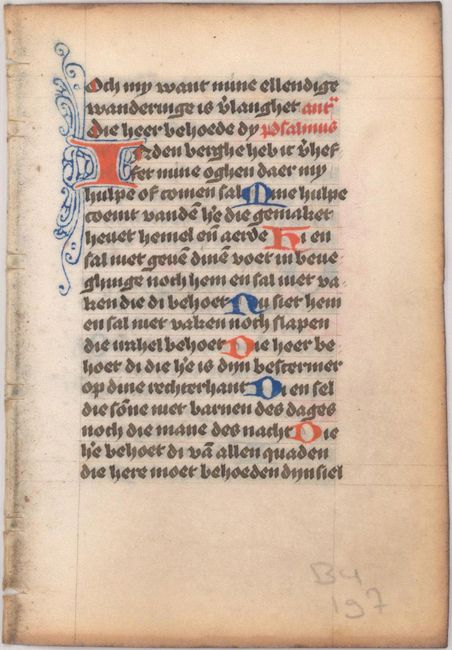 Och my want mine ellendige
wanderinge is v̄langhet ant̄
Die heer behoede dy psalmus
In den berghe heb ic v̄hef
fet mine oghen daer my
hulpe of comen sal Mine hulpe
coemt vandē h̄e die gemaket
heuet hemel en̄ aerde Hi en
sal niet geuē dinē voet in beue
ghinge noch hem en sal niet va
ken die di behoet Nu siet hem
en sal niet vaken noch slapen
die israhel behoet Die heer be
hoet di die h̄e is dijn bescermer
op dine rechterhant Di en sel
die sōne niet barnen des dages
noch die mane des nacht Die
h̄e behoet di vā allen quaden
die here moet behoeden dijn siel
B4
197